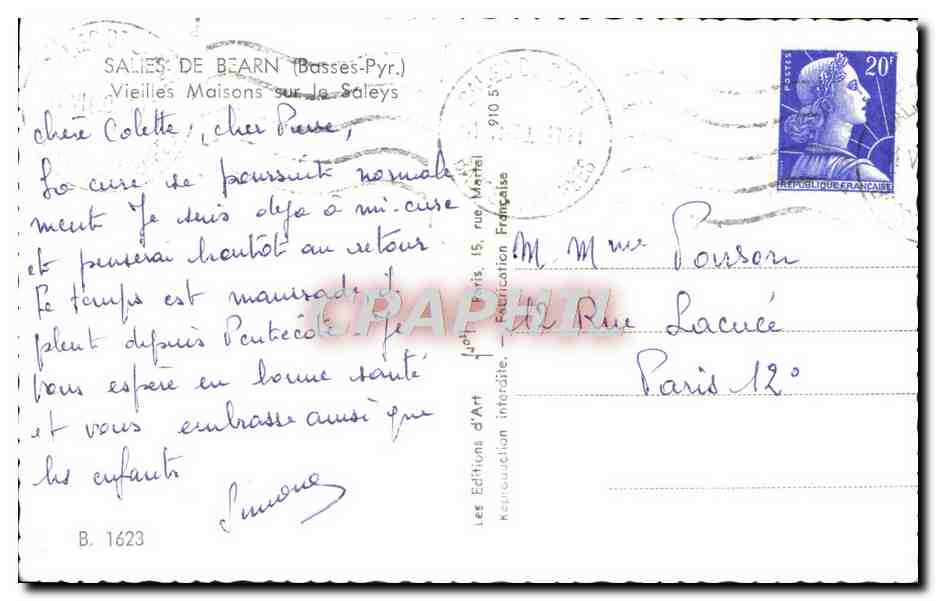 SALIES DE BEARN (Basses-Pyr.)
Vieilles Maisons sur le Saleys
chère Colette, cher Pierre,
La cure se poursuit normale
ment Je suis deja à mi-cure
et penserai bientôt au retour.
Le temps est maussade il
pleut depuis Pentecôte. Je
vous espère en bonne santé
et vous embrasse ainsi que
les enfants
Simone
B. 1623
Les Editions d'Art Paris, 15, rue Martel 910 5
Reproduction interdite. — Fabrication Française
POSTES
20F
REPUBLIQUE FRANÇAISE
M. Mme Ponson
12 Rue Lacuée
Paris 12°
CPARHIL